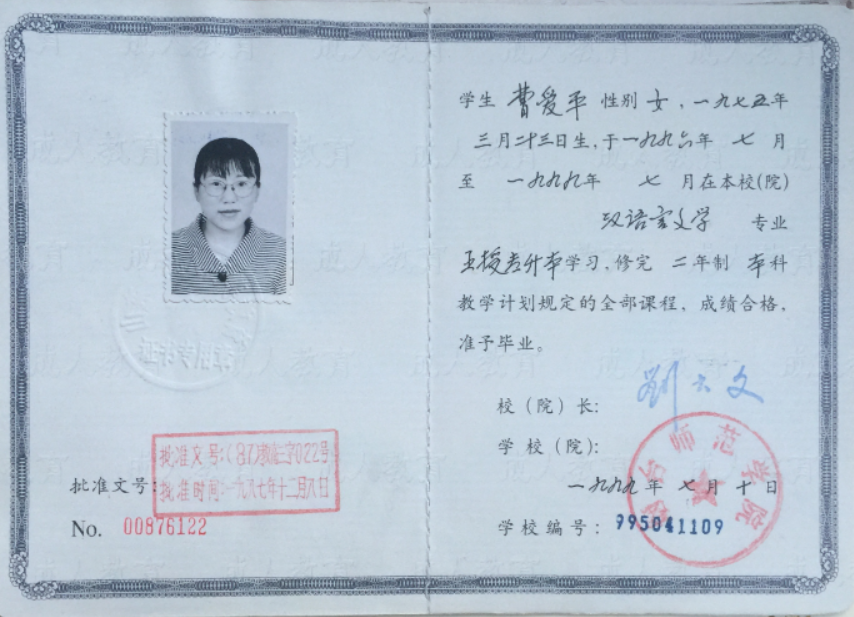 证书专用章
批准文号:(87)教高三字022号
批准时间:一九八七年十二月八日
批准文号:
No. 00876122
学生 曹爱平 性别 女 , 一九七五年
三月二十三日生, 于一九九六年 七 月
至 一九九九年 七 月在本校(院)
汉语言文学 专业
专升本学习, 修完 三年制 本科
教学计划规定的全部课程, 成绩合格,
准予毕业。
校(院)长: 刘云文
学校(院):
烟台师范学院
一九九九年 七月 十日
学校编号: 995041109
成人教育